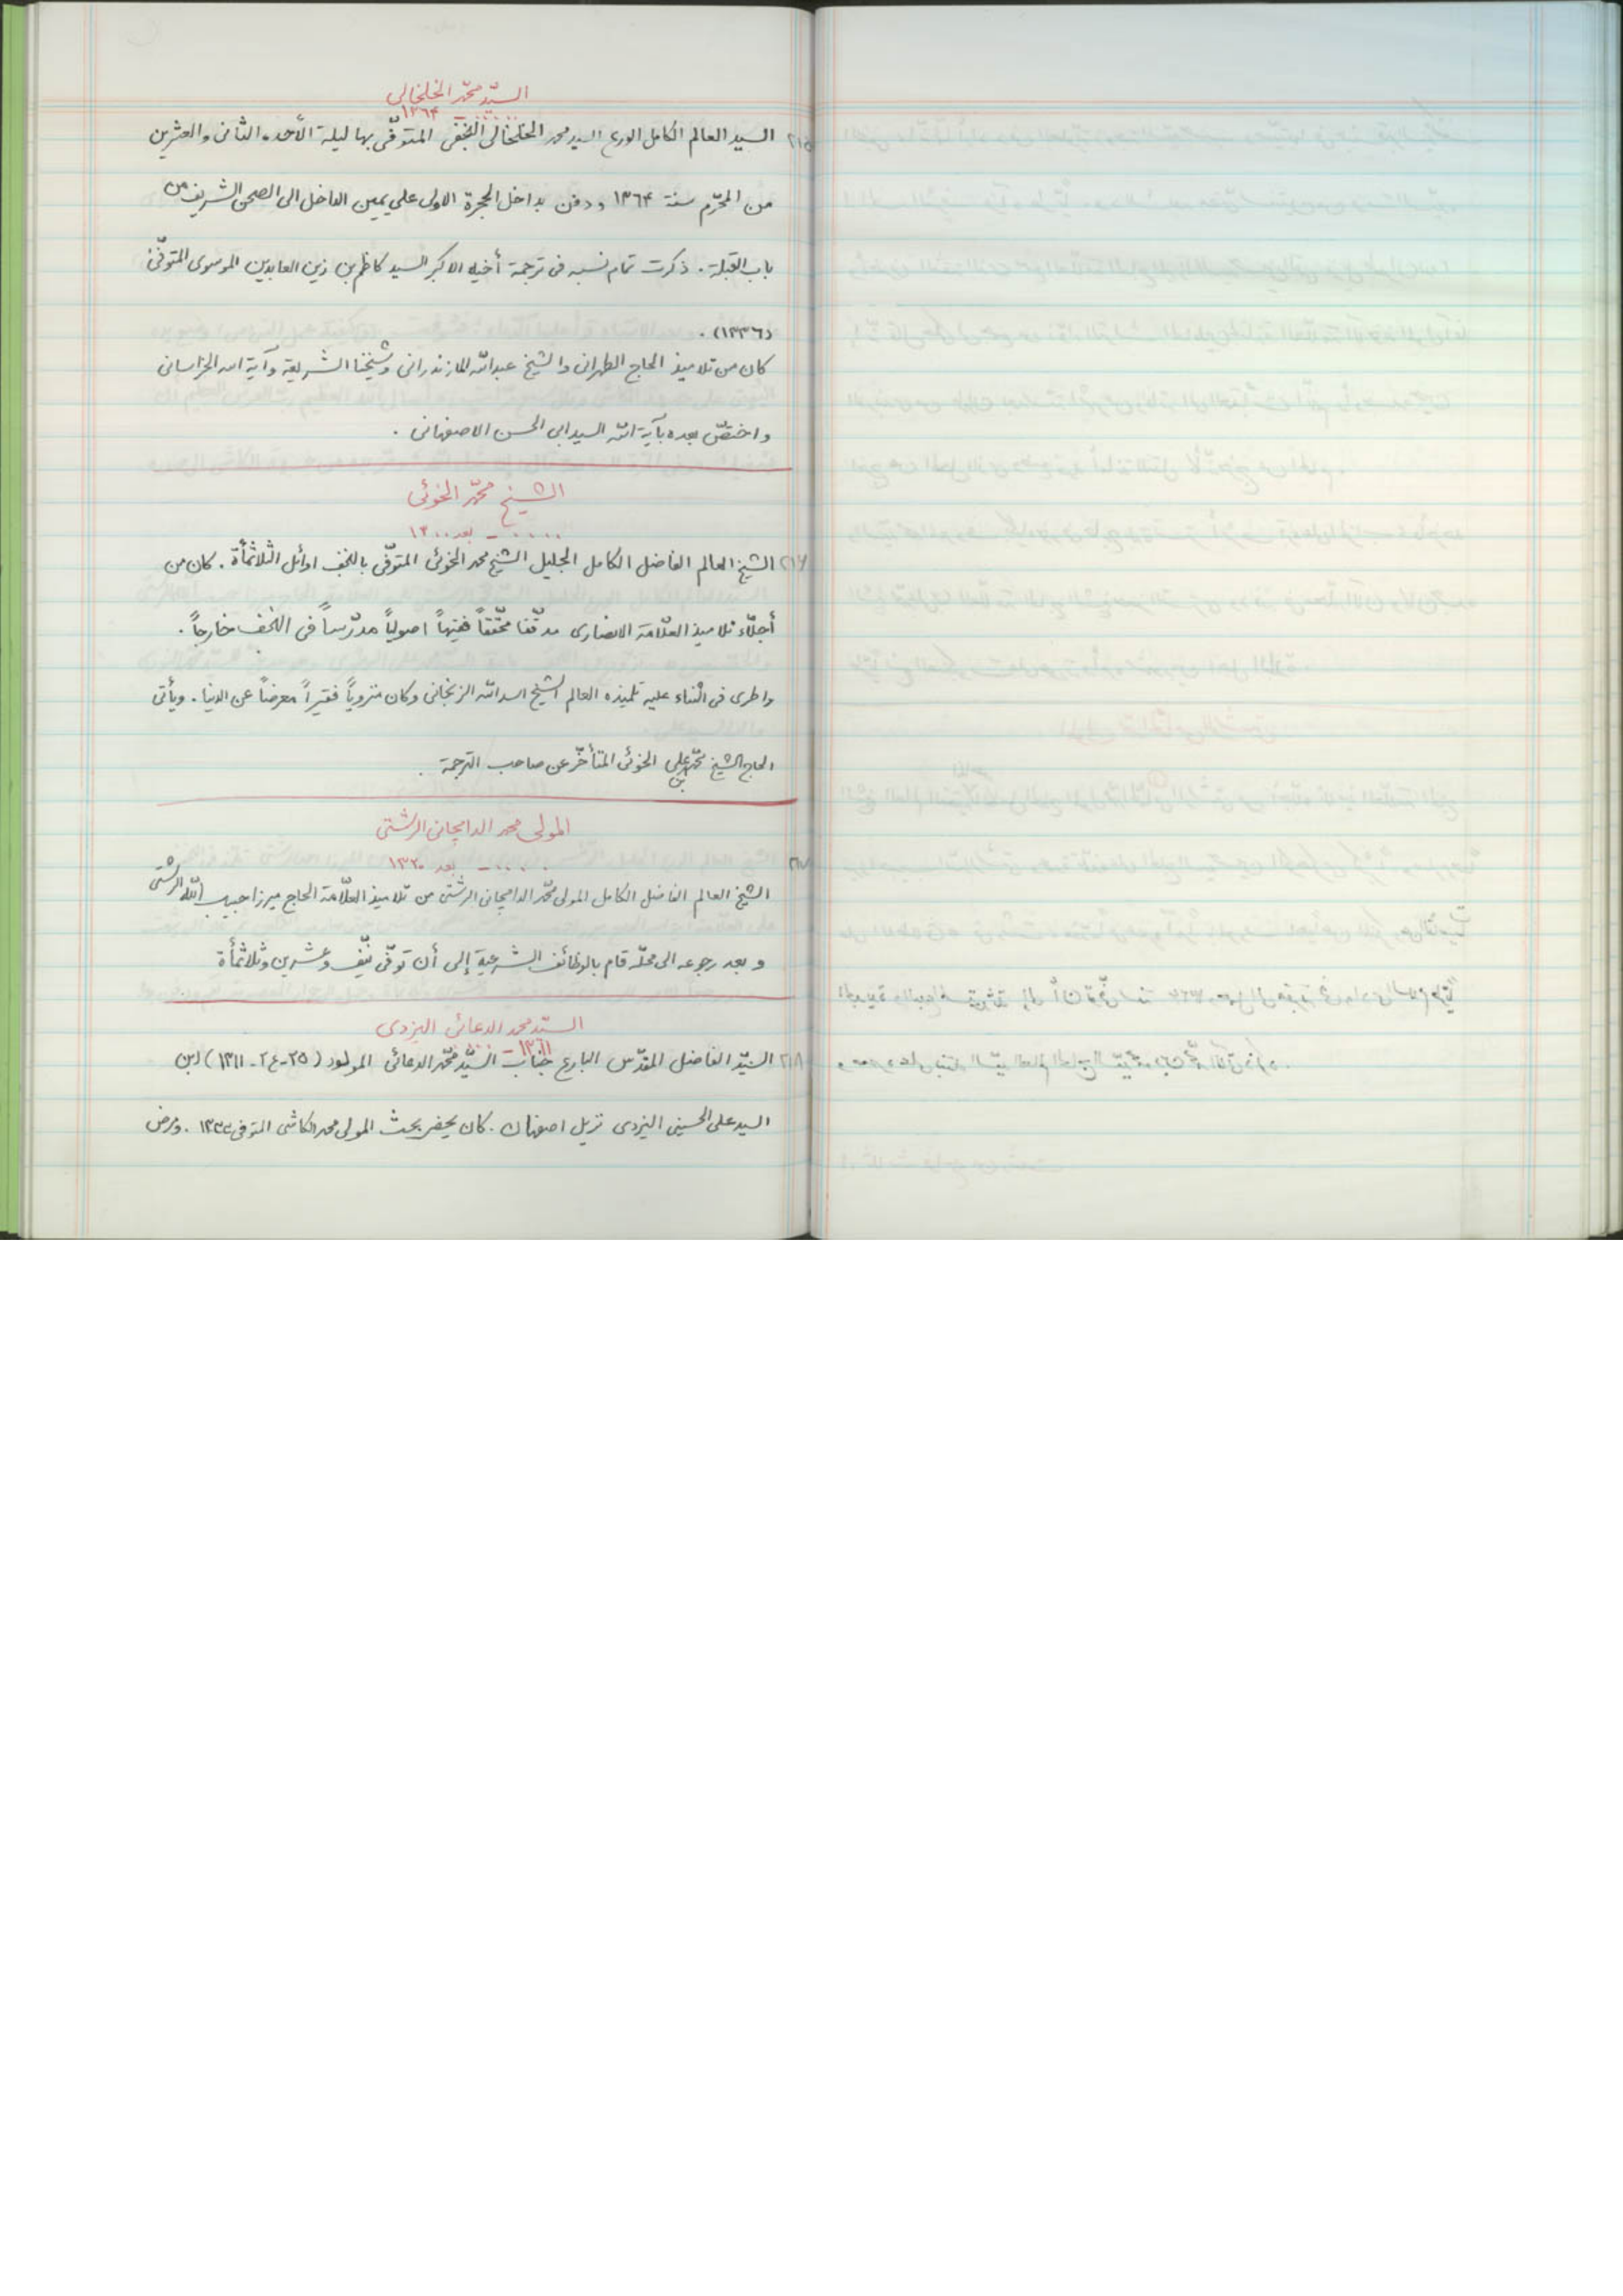 السيّد محمّد الخلخالي
.... ـ ١٣٦۴
٢١٥ السيد العالم الكامل الورع السيد محمد الخلخالي النجفي المتوفّى بها ليلة الأحد، الثاني والعشرين
من المحرّم سنة ١٣٦۴ ودفن بداخل الحجرة الاولى على يمين الداخل الى الصحن الشريف من
باب القبلة. ذكرت تمام نسبه في ترجمة أخيه الاكبر السيد كاظم بن زين العابدين الموسوى المتوفّى
(١٣٣٦).
كان من تلاميذ الحاج الطهرانى والشيخ عبدالله المازندرانى وشيخنا الشريعة وآية الله الخراسانى
واختصّ بعده بآية الله السيد ابى الحسن الاصفهانى.
الشيخ محمّد الخوئى
.... ـ بعد ١٣٠٠
٢١٦ الشيخ العالم الفاضل الكامل الجليل الشيخ محمد الخوئى المتوفّى بالنجف اوائل الثلاثمأة. كان من
أجلّاء تلاميذ العلّامة الانصارى مدقّقا محقّقاً فقيهاً اصولياً مدرّساً فى النجف خارجاً.
واطرى فى الثناء عليه تلميذه العالم الشيخ اسدالله الزنجانى وكان منزوياً فقيراً معرضاً عن الدنيا. ويأتى
الحاج الشيخ محمّد بن على الخوئى المتأخّر عن صاحب الترجمة.
المولى محمد الداميچانى الرشتى
.... ـ بعد ١٣٢٠
٢١٧ الشيخ العالم الفاضل الكامل المولى محمّد الداميچانى الرشتى من تلاميذ العلّامة الحاج ميرزا حبيب الله الرشتى
و بعد رجوعه الى محلّه قام بالوظائف الشرعية إلى أن توفّى نيّف وعشرين وثلاثمأة
السيّد محمد الدعائى اليزدى
١٣١١ ـ ....
٢١٨ السيّد الفاضل المقدّس البارع جناب السيّد محمّد الدعائى المولود (٢٥-ع٢-١٣١١) ابن
السيد على الحسينى اليزدى نزيل اصفهان. كان يحضر بحث المولى محمد الكاشى المتوفى ١٣٣٣. ومرض